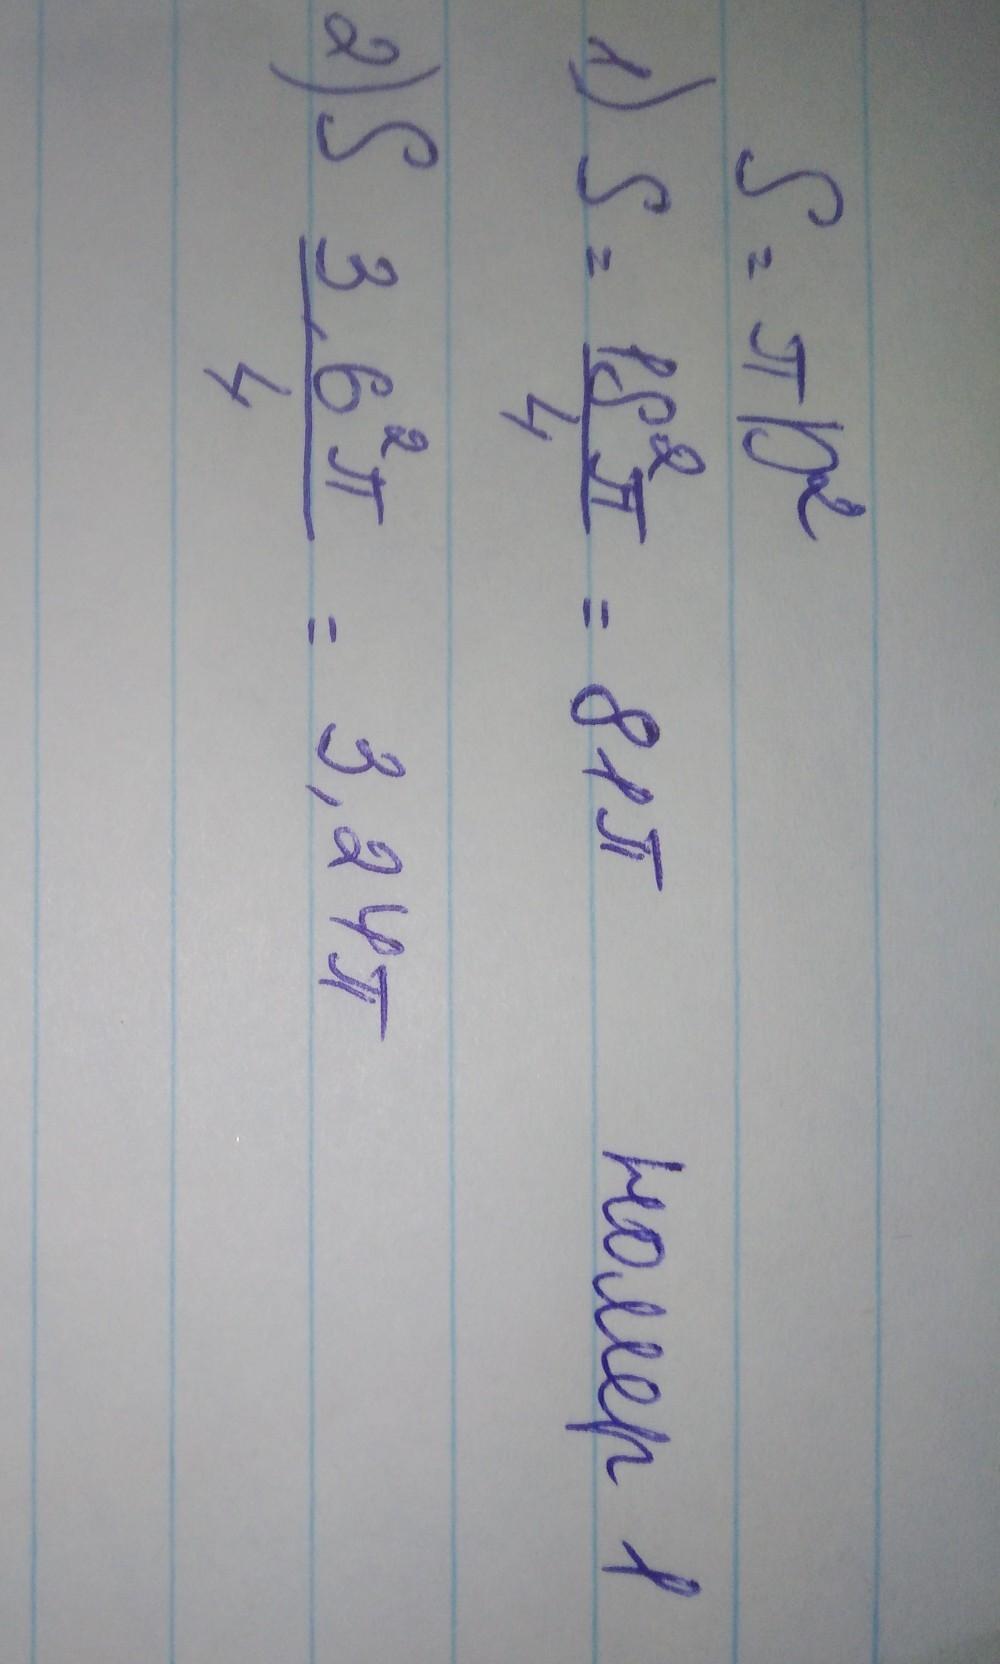 S = πR²
1) S = 18²π/4 = 81π номер 1
2) S 3,6²π/4 = 3,24π